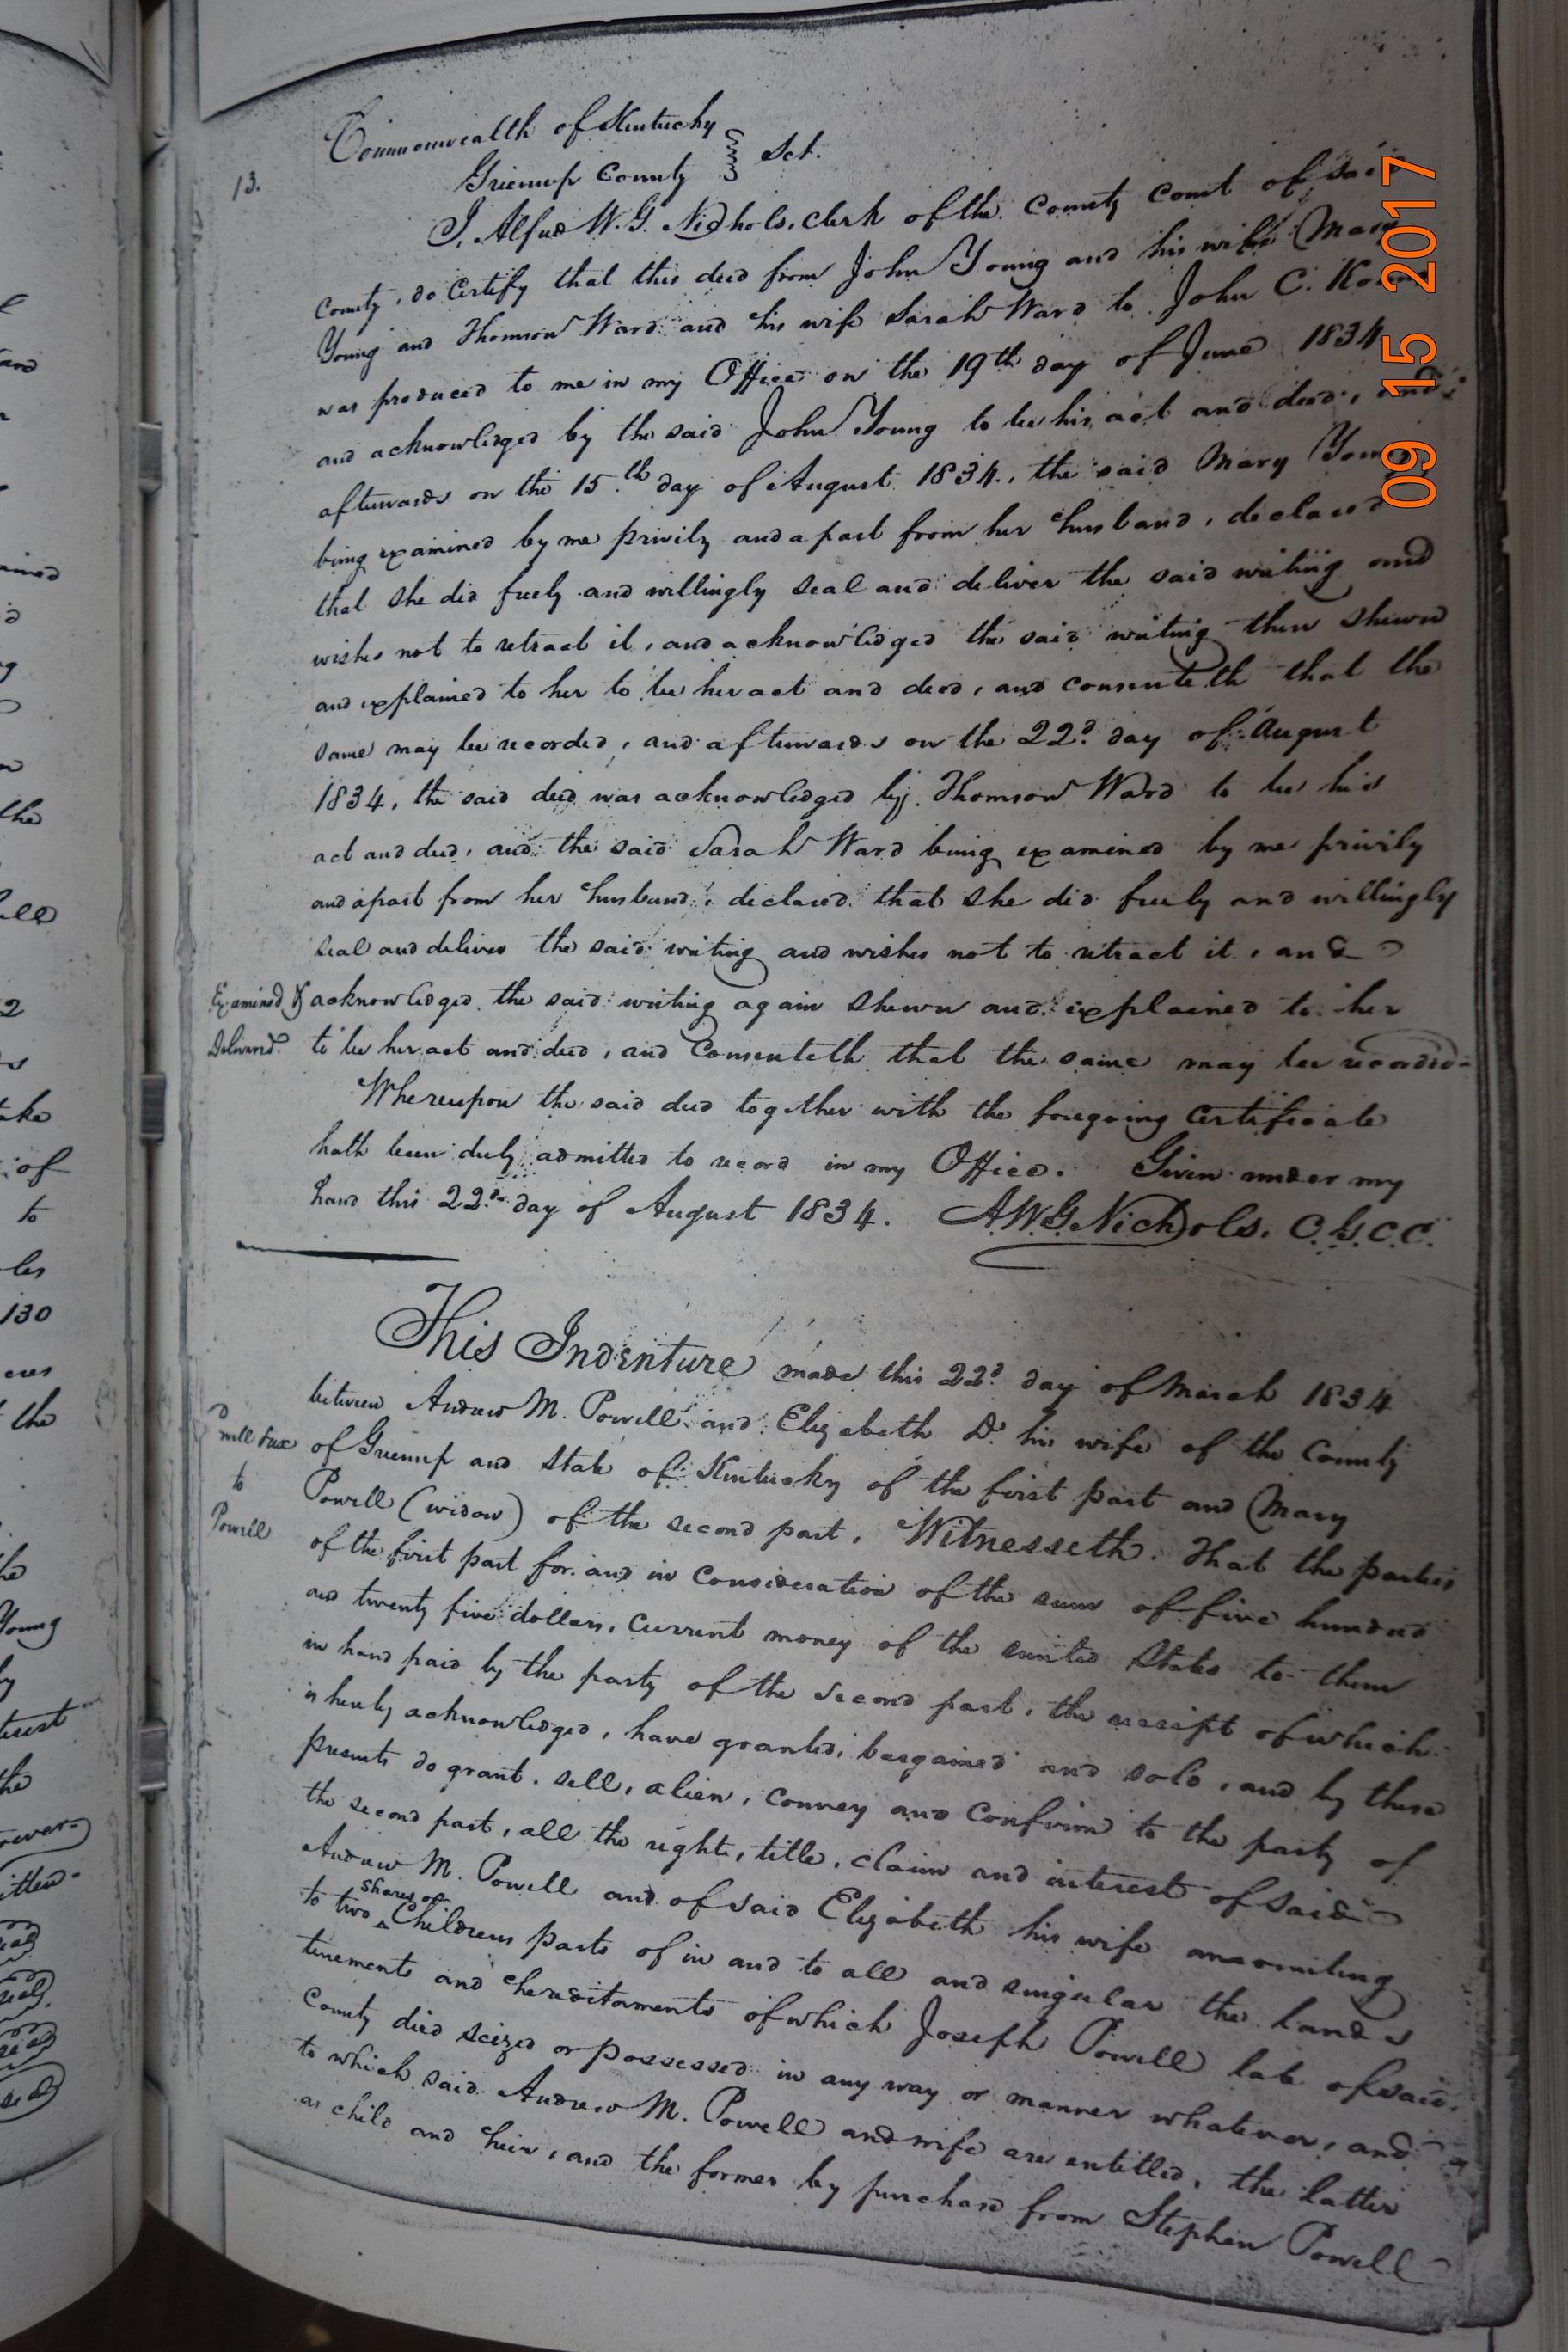 13.
Commonwealth of Kentucky
Greenup County Sct.
I, Alfred W. G. Nichols, clerk of the County Court of said
County, do Certify that this deed from John Young and his wife Mary
Young and Thomson Ward and his wife Sarah Ward to John C.
was produced to me in my Office on the 19th day of June 1834
and acknowledged by the said John Young to be his act and deed, and
afterwards on the 15th day of August 1834, the said Mary Young
being examined by me privily and apart from her husband, declared
that she did freely and willingly seal and deliver the said writing and
wishes not to retract it, and acknowledged the said writing then shewn
and explained to her to be her act and deed, and consenteth that the
same may be recorded, and afterwards on the 22d day of August
1834, the said deed was acknowledged by Thomson Ward to be his
act and deed, and the said Sarah Ward being examined by me privily
and apart from her husband, declared that she did freely and willingly
seal and deliver the said writing and wishes not to retract it, and
Examined & acknowledged the said writing again shewn and explained to her
Delivered. to be her act and deed, and Consenteth that the same may be recorded
Whereupon the said deed together with the foregoing Certificate
hath been duly admitted to record in my Office. Given under my
hand this 22d day of August 1834. A.W.G. Nichols. C.G.C.C.
This Indenture made this 22d day of March 1834
between Andrew M. Powell and Elizabeth D. his wife of the County
of Greenup and State of Kentucky of the first part and Mary
to
Powell
Powell (widow) of the second part, Witnesseth. That the parties
of the first part for and in Consideration of the sum of five hundred
and twenty five dollars, current money of the united States to them
in hand paid by the party of the second part, the receipt of which
is hereby acknowledged, have granted, bargained and sold, and by these
presents do grant, sell, alien, convey and confirm to the party of
the second part, all the right, title, claim and interest of said
Andrew M. Powell and of said Elizabeth his wife amounting
to two shares of Childrens parts of in and to all and singular the lands
tenements and hereditaments of which Joseph Powell late of said
County died seized or possessed in any way or manner whatever, and
to which said Andrew M. Powell and wife are entitled, the latter
as child and heir, and the former by purchase from Stephen Powell
09 15 2017